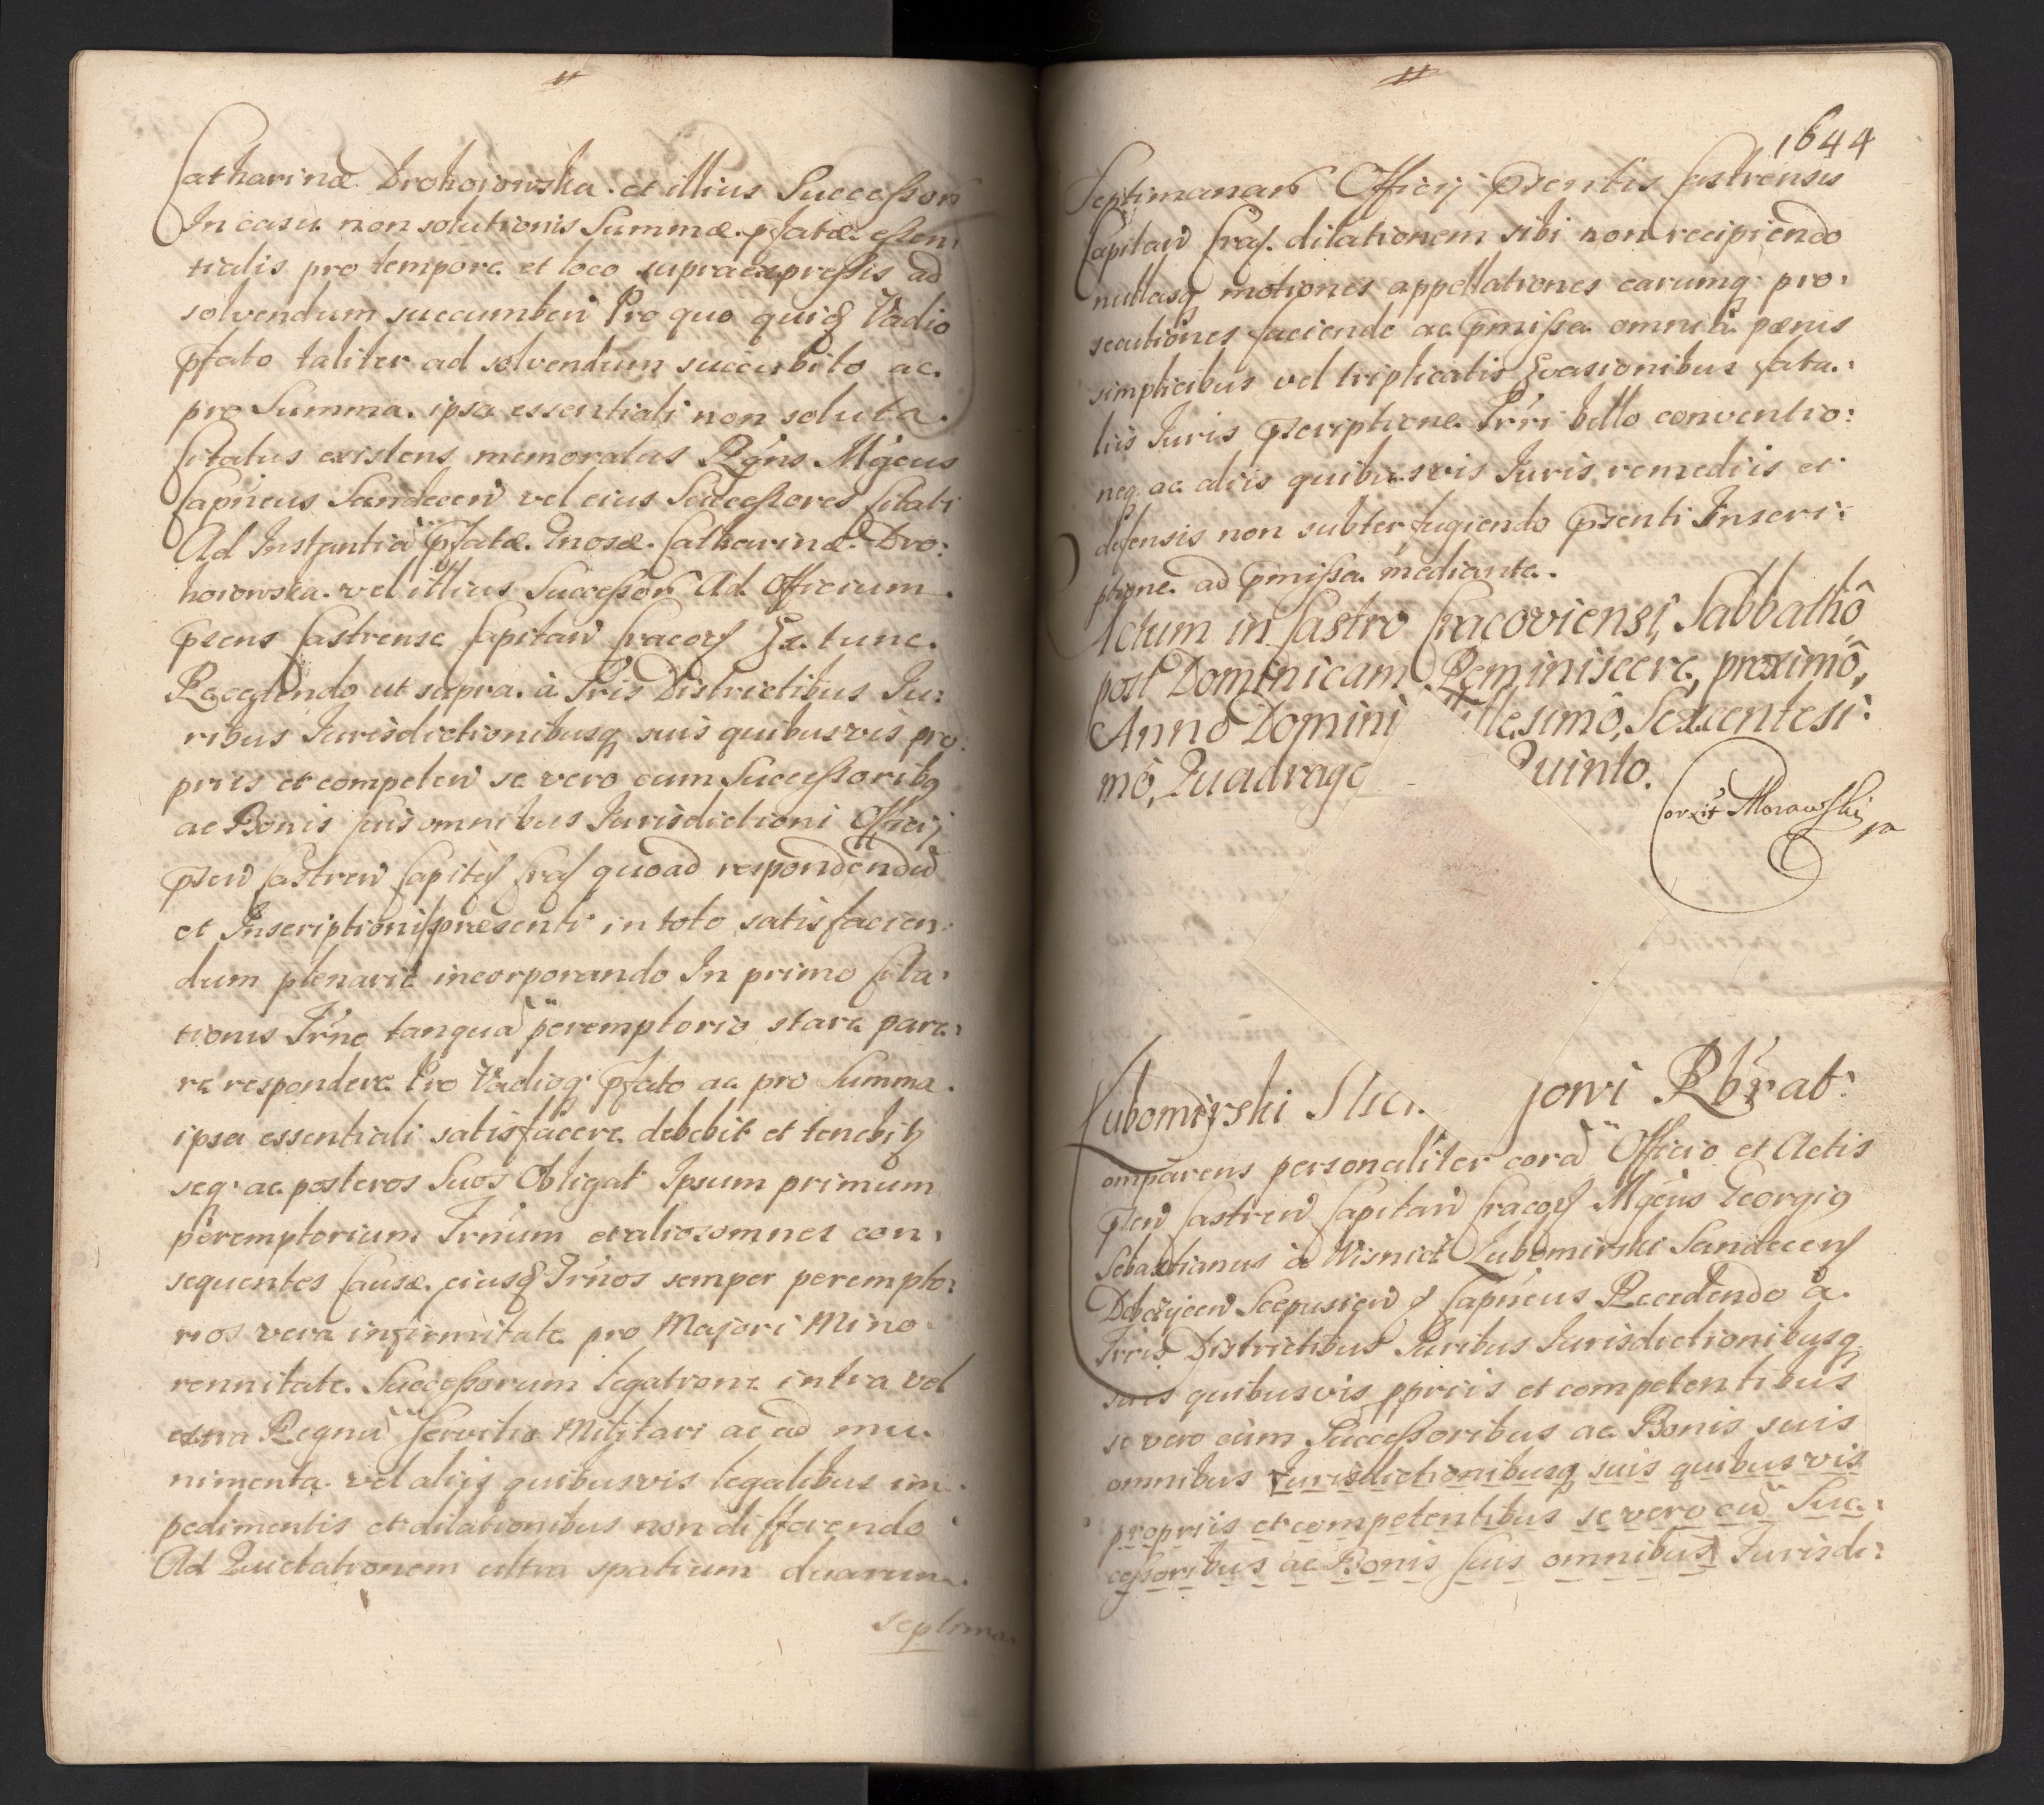 Catharinæ Drohojowska et illius Successoru
In casu non solutionis Summæ pfatæ essen:
tialis pro tempore et loco supraexpressis ad
solvendum succumben Pro quo quidē Vadio
pfato taliter ad solvendum succubito ac
pro Summa ipsa essentiali non soluta
Citatus existens memoratus Rgns Mgcus
Capneus Sandecen vel eius Successores Citati
Ad Instantiā pfatæ Gnosæ Catharinæ Dro:
hoiowska vel illius Successorū Ad Officium
pſens Castrense Capitan Cracov Ex tunc
Recedendo ut supra à Tris Districtibus Iu:
ribus Iurisdictionibusq suis quibusvis pro:
priis et competen se vero cum Successoribq
ac Bonis suis omnibus Iurisdictioni Officij
pſen Castren Capitⱥ Craⱥ quoad respondendū
et Inscriptioni præsenti in toto satisfacien:
dum plenarie incorporando In primo Cita:
tionis Trno tanquā peremptorio stare pare:
re respondere Pro Vadioq pfato ac pro Summa
ipsa essentiali satisfacere debebit et tenebit
seq ac posteros Suos Obligat Ipsum primum
peremptorium Trnum et alios omnes con:
sequentes Causæ eiusq Trnos semper perempto:
rios vera infirmitate pro Majori Mino
rennitate Successorum legatione intra vel
extra Regnū Servitio Militari ac ad mu:
nimenta vel aliis quibusvis legalibus im:
pedimentis et dilationibus non differendo
Ad Quietationem ultra spatium duarum
septima:
1644
Septimanarū Officij pſentis Castrensis
Capitan Craⱥ dilationem sibi non recipiendo
nullasq motiones appellationes earumq pro:
secutiones faciendo ac pmissa omnia pænis
simplicibus vel triplicatis Evasionibus fata:
liis Iuris pſcriptione Trri bello conventio:
neq ac aliis quibusvis Iuris remediis et
defensis non subterfugiendo pſenti Inscri:
ptione ad pmissa mediante.
Actum in Castro Cracoviensi, Sabbathô
post Dominicam Reminiscere, proximô,
Anno Domini llesimô, Sexcentesi:
mô, Quadrage uinto.
Corxit Morawski
Lubomirski jowi Rbrat:
omparens personaliter corā Officio et Actis
pſen Castren Capitan Cracoⱥ Mgcus Georgiq
Sebastianus à Wisnicz Lubomirski Sandecen
Scepusien Capneus Recedendo à
Trris Districtibus Iuribus Iurisdictionibusq
suis quibusvis ppriis et competentibus
se vero cum Successoribus ac Bonis suis
omnibus Iurisdictionibusq suis quibusvis
propriis et competentibus se vero cū Suc:
cessoribus ac Bonis suis omnibus Iurisdi: